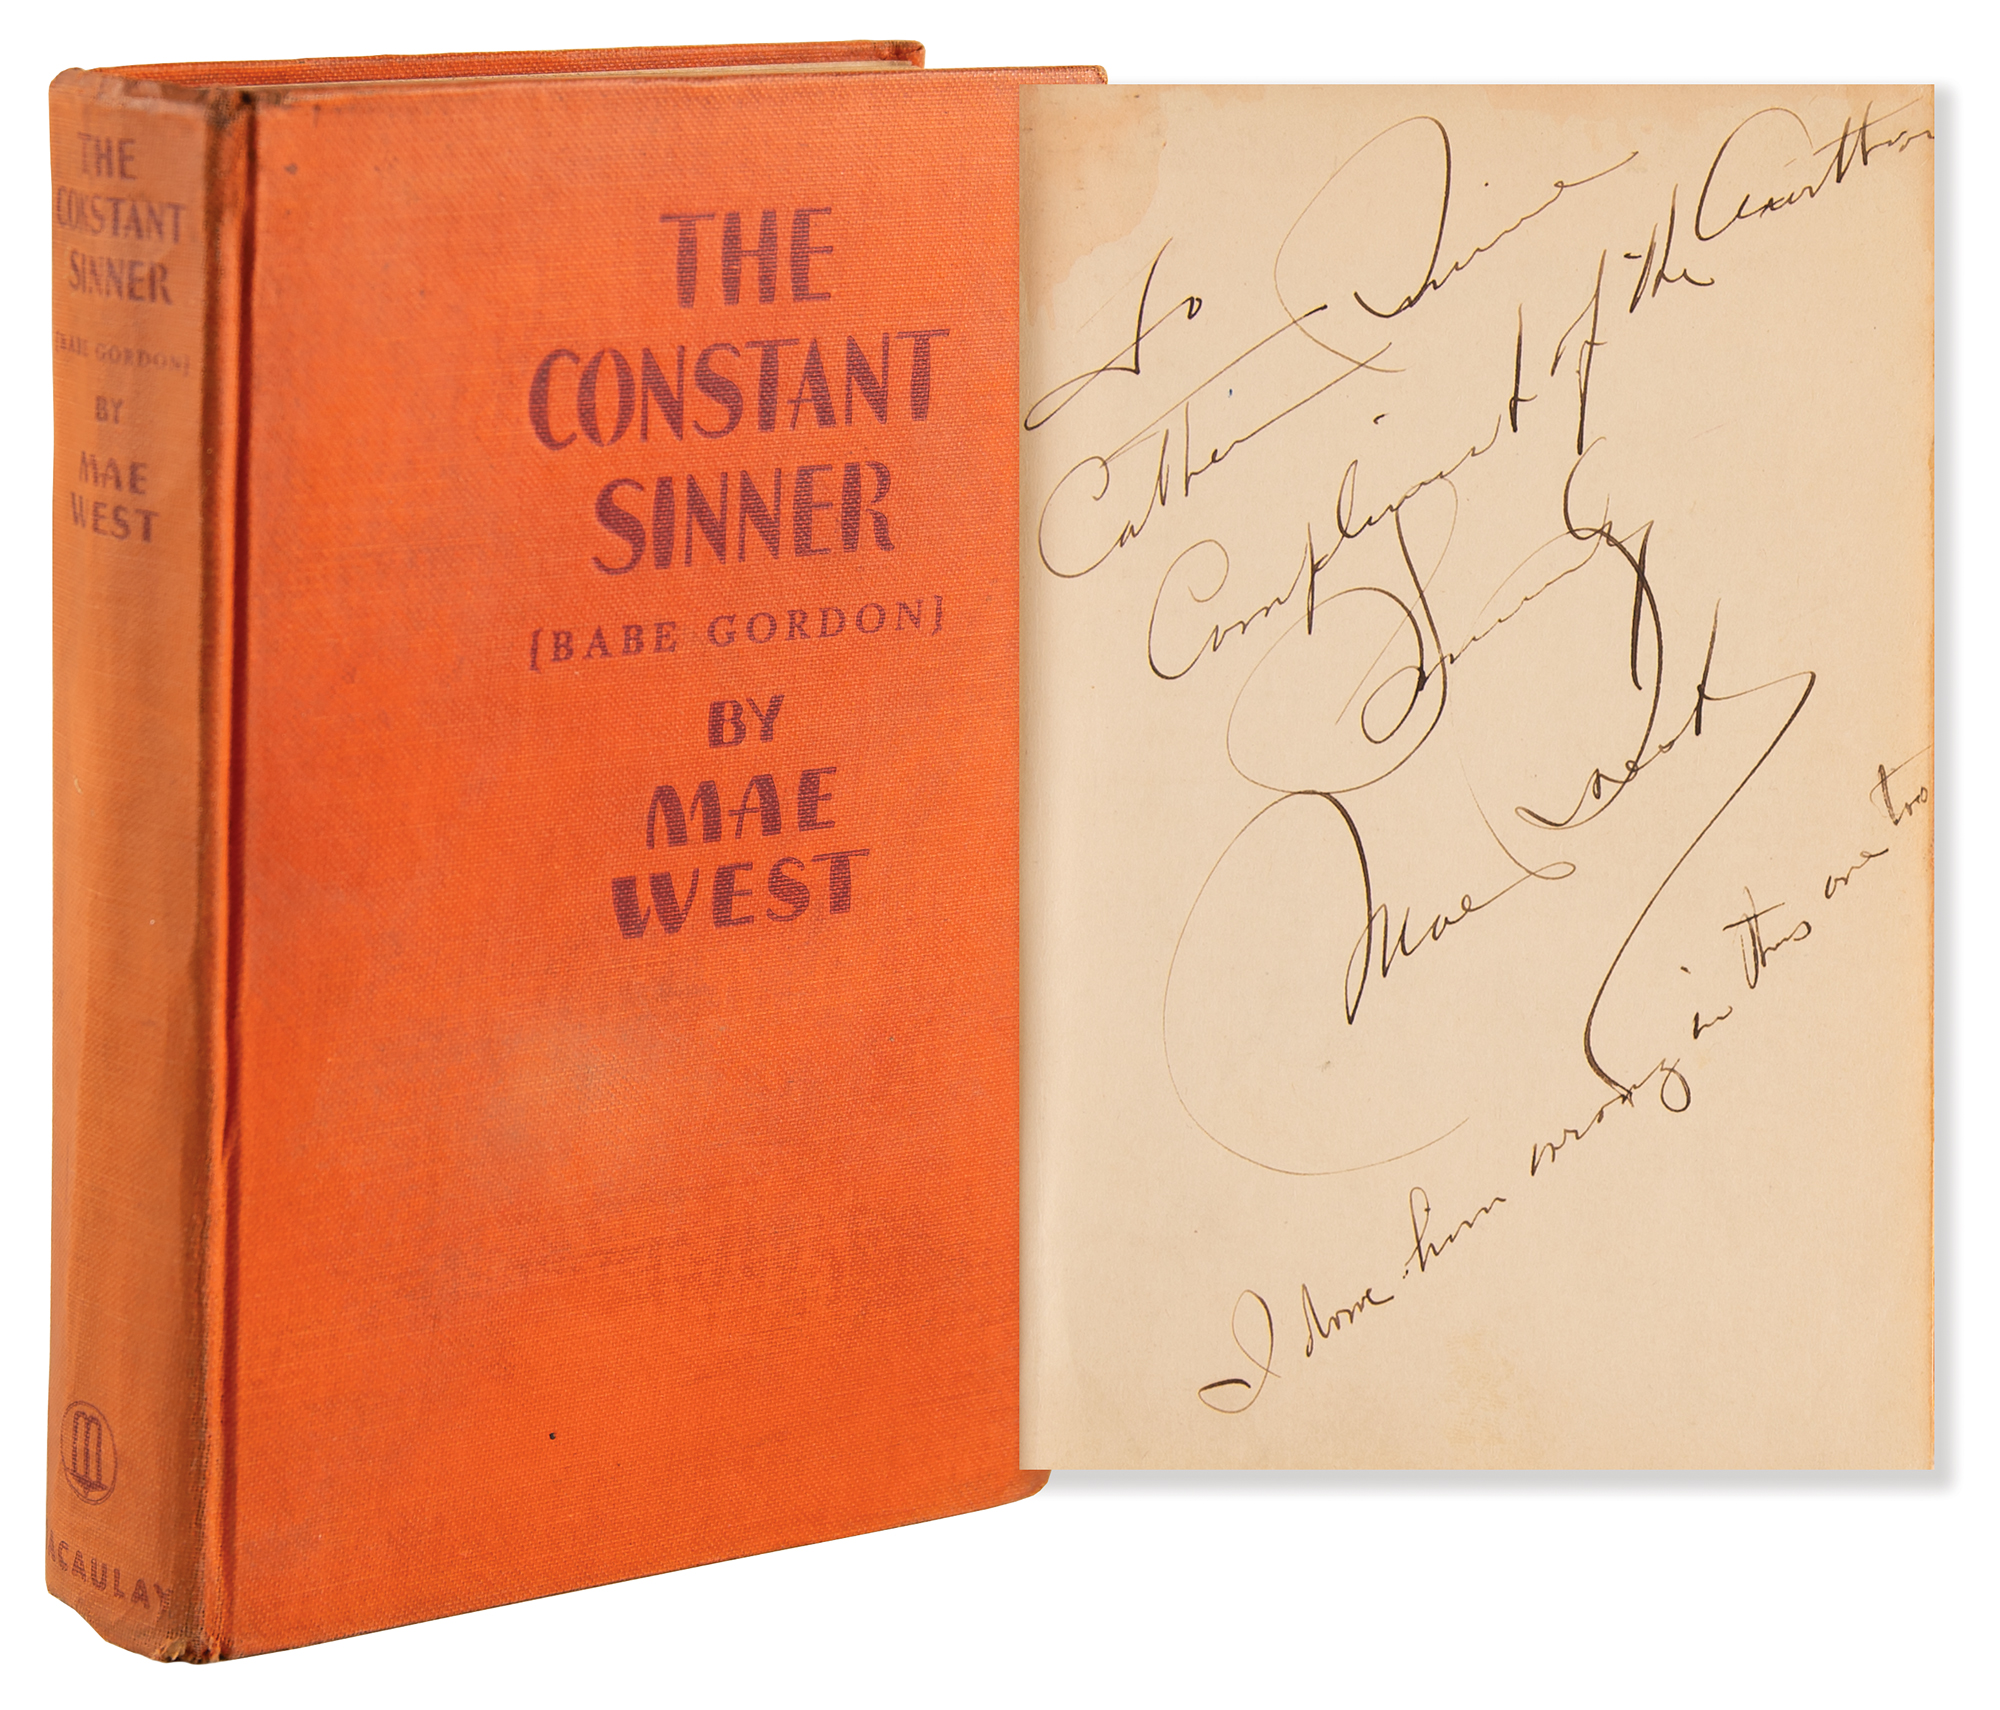 THE
CONSTANT
SINNER
[BABE GORDON]
BY
MAE
WEST
ACAULAY
THE
CONSTANT
SINNER
[BABE GORDON]
BY
MAE
WEST
To
Catherine
Compliment of the Author
Sincerely
Mae West
I done him wrong in this one too